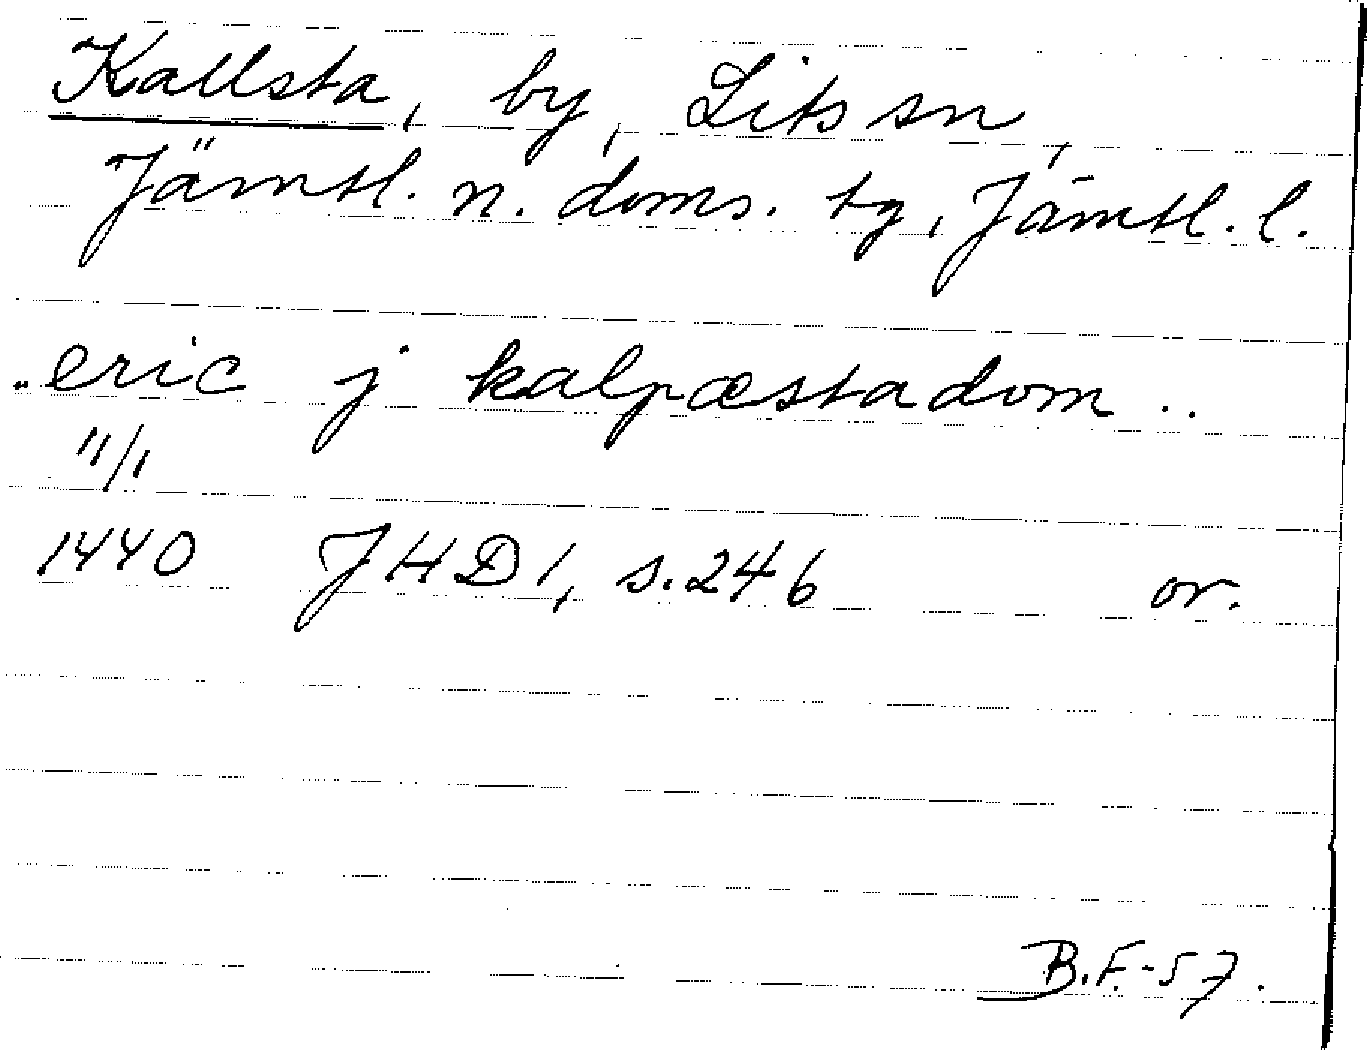 Kallsta, by, Lits sn,
Jämtl. n. doms. tg, Jämtl. l.
..eric j kalpæstadom ..
11/1
1440 JHD 1, s. 246 or.
B.F.-57.